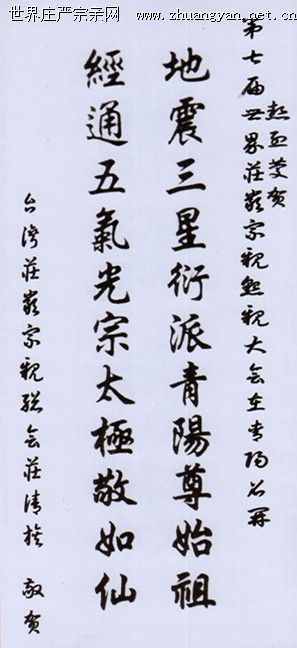 世界庄严宗亲网
www.zhuangyan.net.cn
热烈庆贺
第七届世界莊嚴宗親懇親大会在青阳召開
地震三星衍派青陽尊始祖
經通五氣光宗太極敬如仙
台灣莊嚴宗親聯会莊清 敬贺